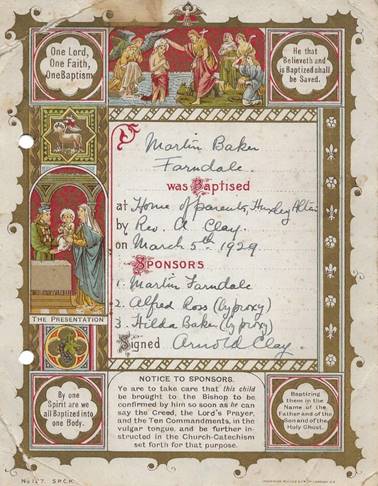 One Lord,
One Faith,
One Baptism
He that
Believeth and
is Baptized shall
be Saved.
Martin Baker
Farndale.
was Baptised
at Home of parents, Huxley Alta
by Rev. A Clay.
on March 5th 1929
SPONSORS
1. Martin Farndale
2. Alfred Ross (by proxy)
3. Hilda Baker (by proxy)
Signed Arnold Clay.
THE PRESENTATION
By one
Spirit are we
all Baptized into
one Body.
NOTICE TO SPONSORS.
Ye are to take care that this child
be brought to the Bishop to be
confirmed by him so soon as he can
say the Creed, the Lord's Prayer,
and the Ten Commandments, in the
vulgar tongue, and be further in-
structed in the Church-Catechism
set forth for that purpose.
Baptizing
them in the
Name of the
Father and of the
Son and of the
Holy Ghost.
S.P.C.K.